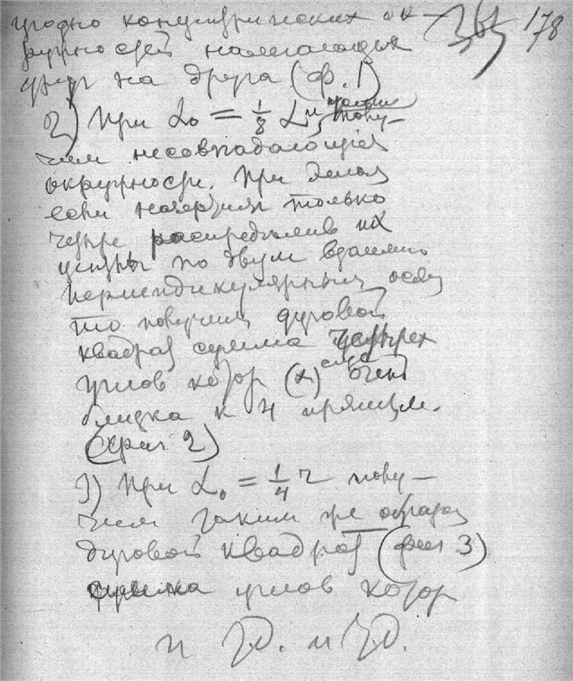 угодно концентрических ок- 178
ружностей налегающих
друг на друга (ф. 1)
2) При L₀ = 1/8 L полу-
чим несовпадающие
окружности. При этом
если начертим только
четыре распределив их
центры по двум взаимно
перпендикулярным осям
то получим дуговой
квадрат сумма четырех
углов котор (x)
близка к 4 прямым.
(фиг 2)
3) При L₀ = 1/4 r полу-
чим таким же образом
дуговой квадрат (фиг 3)
сумма углов котор
и т.д. и т.д.